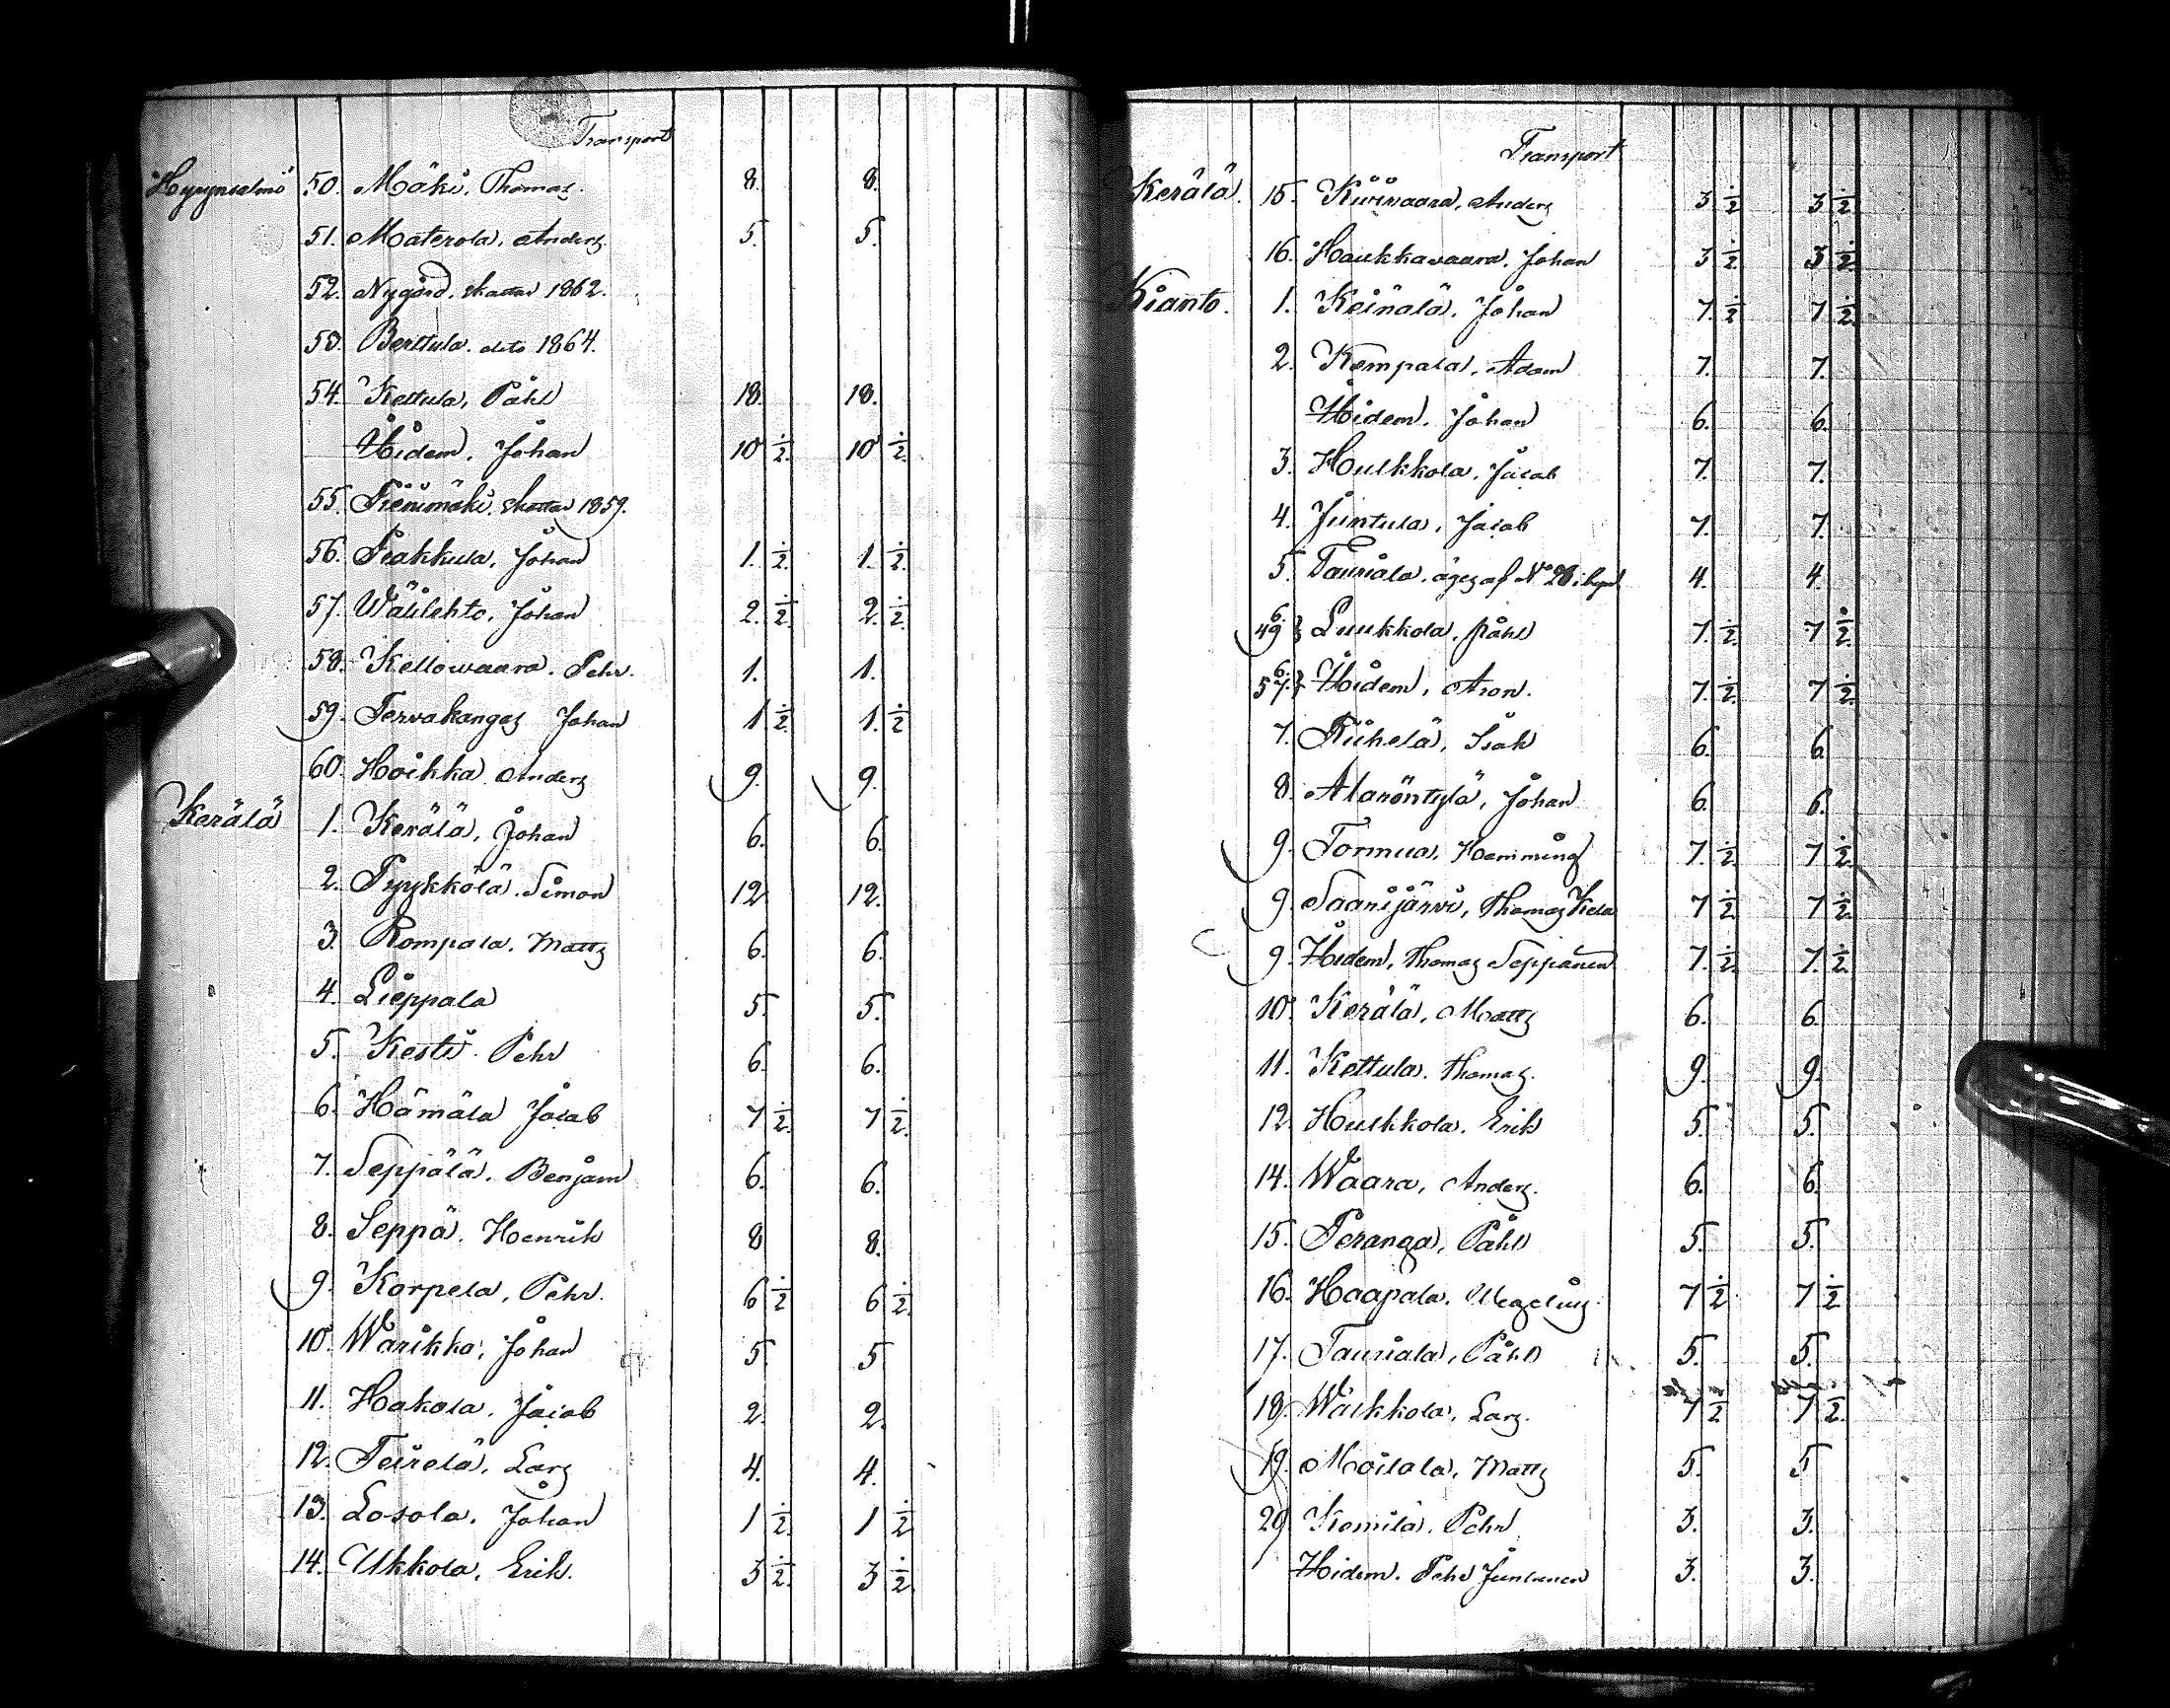 Transport
Hyrynsalmi 50. Mäki. Thomas. 8. 8.
51. Materola. Anders. 5. 5.
52. Nygård. skattar 1862.
53. Berttula. dito 1864.
54. Kettula, Påhl 18. 18.
Ibidem. Johan 10 ½. 10 ½.
55. Pienimäki. skattar 1859.
56. Pakkula, Johan 1. ½. 1. ½.
57. Wäilehto, Johan 2. ½. 2. ½.
58. Kellowaara. Pehr. 1. 1.
59. Tervakangas Johan 1 ½. 1. ½
60. Hoikka Anders 9. 9.
Kerälä 1. Kerälä, Johan 6. 6.
2. Pyykkölä. Simon 12. 12.
3. Rompala. Matts 6. 6.
4. Lieppala 5. 5.
5. Kesti. Pehr 6. 6.
6. Hämälä Jacob 7 ½. 7 ½.
7. Seppälä. Benjam 6. 6.
8. Seppä. Henrik 8 8.
9. Korpela, Pehr. 6 ½ 6 ½.
10. Warikko, Johan 5 5
11. Hakola. Jacob 2. 2.
12. Teirelä. Lars 4. 4.
13. Losola. Johan 1 ½. 1 ½
14. Ukkola, Erik. 3 ½. 3 ½.
Transport
Kerälä. 15. Anders 3 ½ 3 ½.
16. Haukkavaara. Johan 3 ½. 3 ½.
Kianto. 1. Keinälä. Johan 7. ½ 7 ½.
2. Kempala, Adam 7. 7.
Ibidem. Johan 6. 6.
3. Hulkkola. Jacob 7. 7.
4. Juntula, Jacob 7. 7.
5. Tauriala. äges af No 28 i 4. 4.
6. 49 } Luukkola. Påhl 7. ½. 7 ½
6. 57. } Ibidem, Aron. 7. ½. 7 ½
7. Riihelä, Isak 6. 6.
8. Alaröntylä, Johan 6. 6.
9. Tormua, Hemming 7. ½. 7 ½.
9. Saarijärvi, Thomas Kela 7 ½. 7 ½.
9. Ibidem, Thomas Seppänen 7. ½. 7. ½.
10. Kerälä, Matts 6. 6.
11. Kettula. Thomas. 9. 9.
12. Hulkkola. Erik 5. 5.
14. Waara, Anders. 6. 6.
15. Peranga, Påhl 5. 5.
16. Haapala. 7 ½ 7 ½
17. Tauriala, Påhl 5. 5.
18. Walkkola, Lars. 7 ½ 7 ½.
19. Moilala, Matts 5. 5
20. Komila. Pehr 3. 3.
Ibidem. Pehr Juntunen 3. 3.